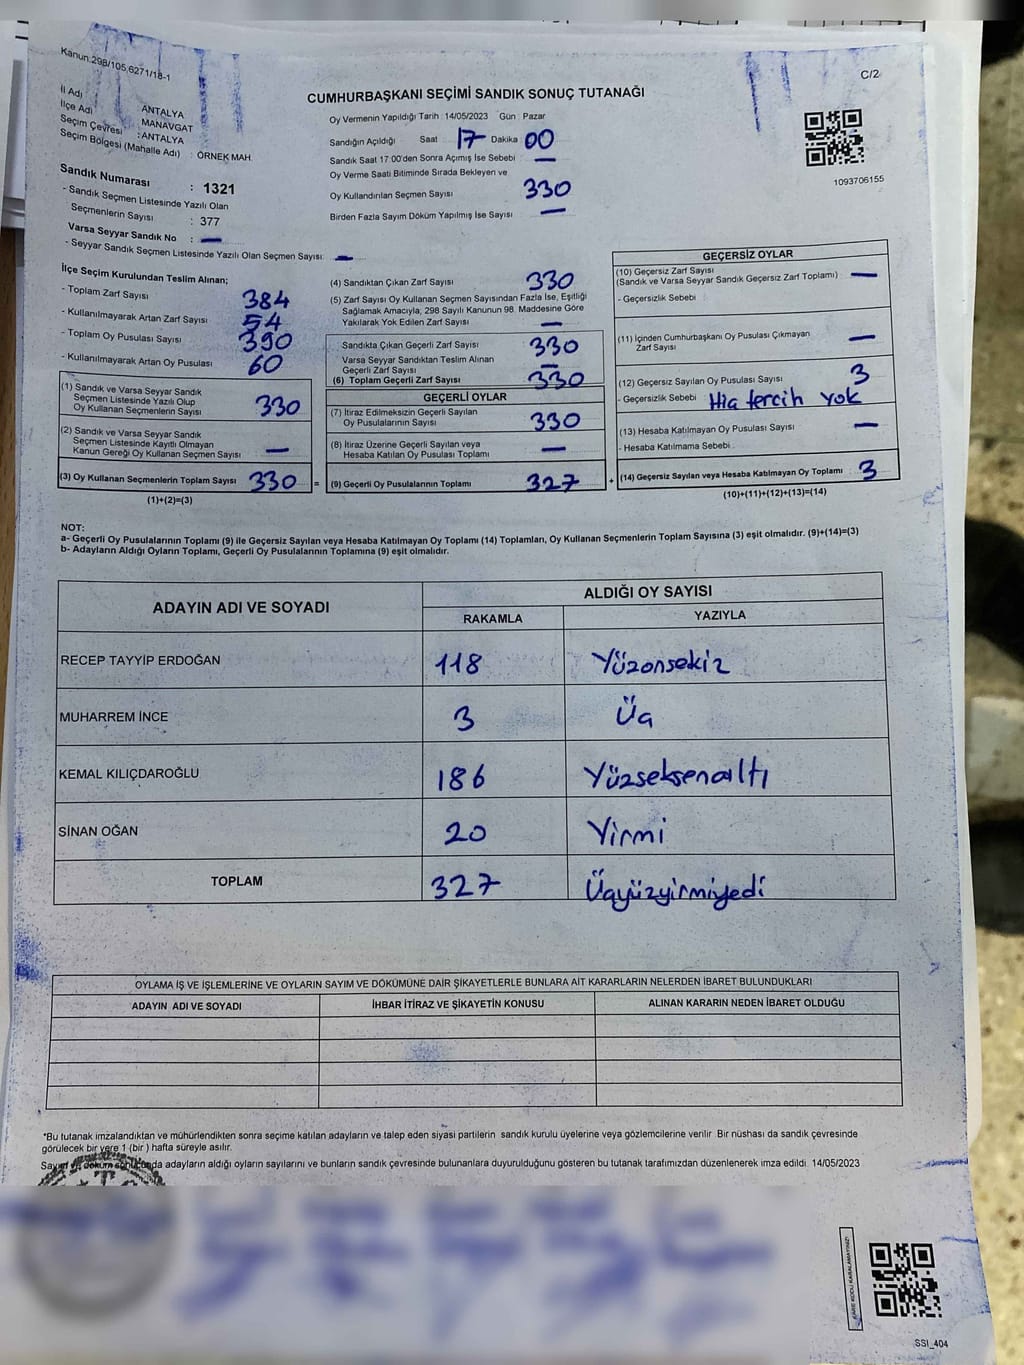 Kanun:298/105,6271/18-1
C/2
CUMHURBAŞKANI SEÇİMİ SANDIK SONUÇ TUTANAĞI
İl Adı ANTALYA
İlçe Adı MANAVGAT
Seçim Çevresi : ANTALYA
Seçim Bölgesi (Mahalle Adı) : ÖRNEK MAH.
Sandık Numarası : 1321
- Sandık Seçmen Listesinde Yazılı Olan
Seçmenlerin Sayısı : 377
Varsa Seyyar Sandık No : —
- Seyyar Sandık Seçmen Listesinde Yazılı Olan Seçmen Sayısı: —
Oy Vermenin Yapıldığı Tarih 14/05/2023 Gün : Pazar
Sandığın Açıldığı Saat 17 Dakika 00
Sandık Saat 17:00'den Sonra Açımış İse Sebebi —
Oy Verme Saati Bitiminde Sırada Bekleyen ve
Oy Kullandırılan Seçmen Sayısı 330
Birden Fazla Sayım Döküm Yapılmış İse Sayısı —
1093706155
İlçe Seçim Kurulundan Teslim Alınan;
- Toplam Zarf Sayısı 384
- Kullanılmayarak Artan Zarf Sayısı 54
- Toplam Oy Pusulası Sayısı 390
- Kullanılmayarak Artan Oy Pusulası 60
(1) Sandık ve Varsa Seyyar Sandık
Seçmen Listesinde Yazılı Olup
Oy Kullanan Seçmenlerin Sayısı 330
(2) Sandık ve Varsa Seyyar Sandık
Seçmen Listesinde Kayıtlı Olmayan
Kanun Gereği Oy Kullanan Seçmen Sayısı —
(3) Oy Kullanan Seçmenlerin Toplam Sayısı 330 =
(1)+(2)=(3)
(4) Sandıktan Çıkan Zarf Sayısı 330
(5) Zarf Sayısı Oy Kullanan Seçmen Sayısından Fazla İse, Eşitliği
Sağlamak Amacıyla, 298 Sayılı Kanunun 98. Maddesine Göre
Yakılarak Yok Edilen Zarf Sayısı —
Sandıkta Çıkan Geçerli Zarf Sayısı 330
Varsa Seyyar Sandıktan Teslim Alınan
Geçerli Zarf Sayısı —
(6) Toplam Geçerli Zarf Sayısı 330
GEÇERLİ OYLAR
(7) İtiraz Edilmeksizin Geçerli Sayılan
Oy Pusulalarının Sayısı 330
(8) İtiraz Üzerine Geçerli Sayılan veya
Hesaba Katılan Oy Pusulası Toplamı —
(9) Geçerli Oy Pusulalarının Toplamı 327 +
GEÇERSİZ OYLAR
(10) Geçersiz Zarf Sayısı
(Sandık ve Varsa Seyyar Sandık Geçersiz Zarf Toplamı) —
- Geçersizlik Sebebi
(11) İçinden Cumhurbaşkanı Oy Pusulası Çıkmayan
Zarf Sayısı —
(12) Geçersiz Sayılan Oy Pusulası Sayısı 3
- Geçersizlik Sebebi Hiç tercih yok
(13) Hesaba Katılmayan Oy Pusulası Sayısı —
- Hesaba Katılmama Sebebi :
(14) Geçersiz Sayılan veya Hesaba Katılmayan Oy Toplamı 3
(10)+(11)+(12)+(13)=(14)
NOT:
a- Geçerli Oy Pusulalarının Toplamı (9) ile Geçersiz Sayılan veya Hesaba Katılmayan Oy Toplamı (14) Toplamları, Oy Kullanan Seçmenlerin Toplam Sayısına (3) eşit olmalıdır. (9)+(14)=(3)
b- Adayların Aldığı Oyların Toplamı, Geçerli Oy Pusulalarının Toplamına (9) eşit olmalıdır.
ADAYIN ADI VE SOYADI ALDIĞI OY SAYISI
RAKAMLA YAZIYLA
RECEP TAYYİP ERDOĞAN 118 Yüzonsekiz
MUHARREM İNCE 3 Üç
KEMAL KILIÇDAROĞLU 186 Yüzseksenaltı
SİNAN OĞAN 20 Yirmi
TOPLAM 327 Üçyüzyirmiyedi
OYLAMA İŞ VE İŞLEMLERİNE VE OYLARIN SAYIM VE DÖKÜMÜNE DAİR ŞİKAYETLERLE BUNLARA AİT KARARLARIN NELERDEN İBARET BULUNDUKLARI
ADAYIN ADI VE SOYADI İHBAR İTİRAZ VE ŞİKAYETİN KONUSU ALINAN KARARIN NEDEN İBARET OLDUĞU
*Bu tutanak imzalandıktan ve mühürlendikten sonra seçime katılan adayların ve talep eden siyasi partilerin sandık kurulu üyelerine veya gözlemcilerine verilir. Bir nüshası da sandık çevresinde
görülecek bir yere 1 (bir ) hafta süreyle asılır.
Sayım ve döküm sonucunda adayların aldığı oyların sayılarını ve bunların sandık çevresinde bulunanlara duyurulduğunu gösteren bu tutanak tarafımızdan düzenlenerek imza edildi. 14/05/2023
KARE KODU KARALAMAYINIZ!
SSI_404